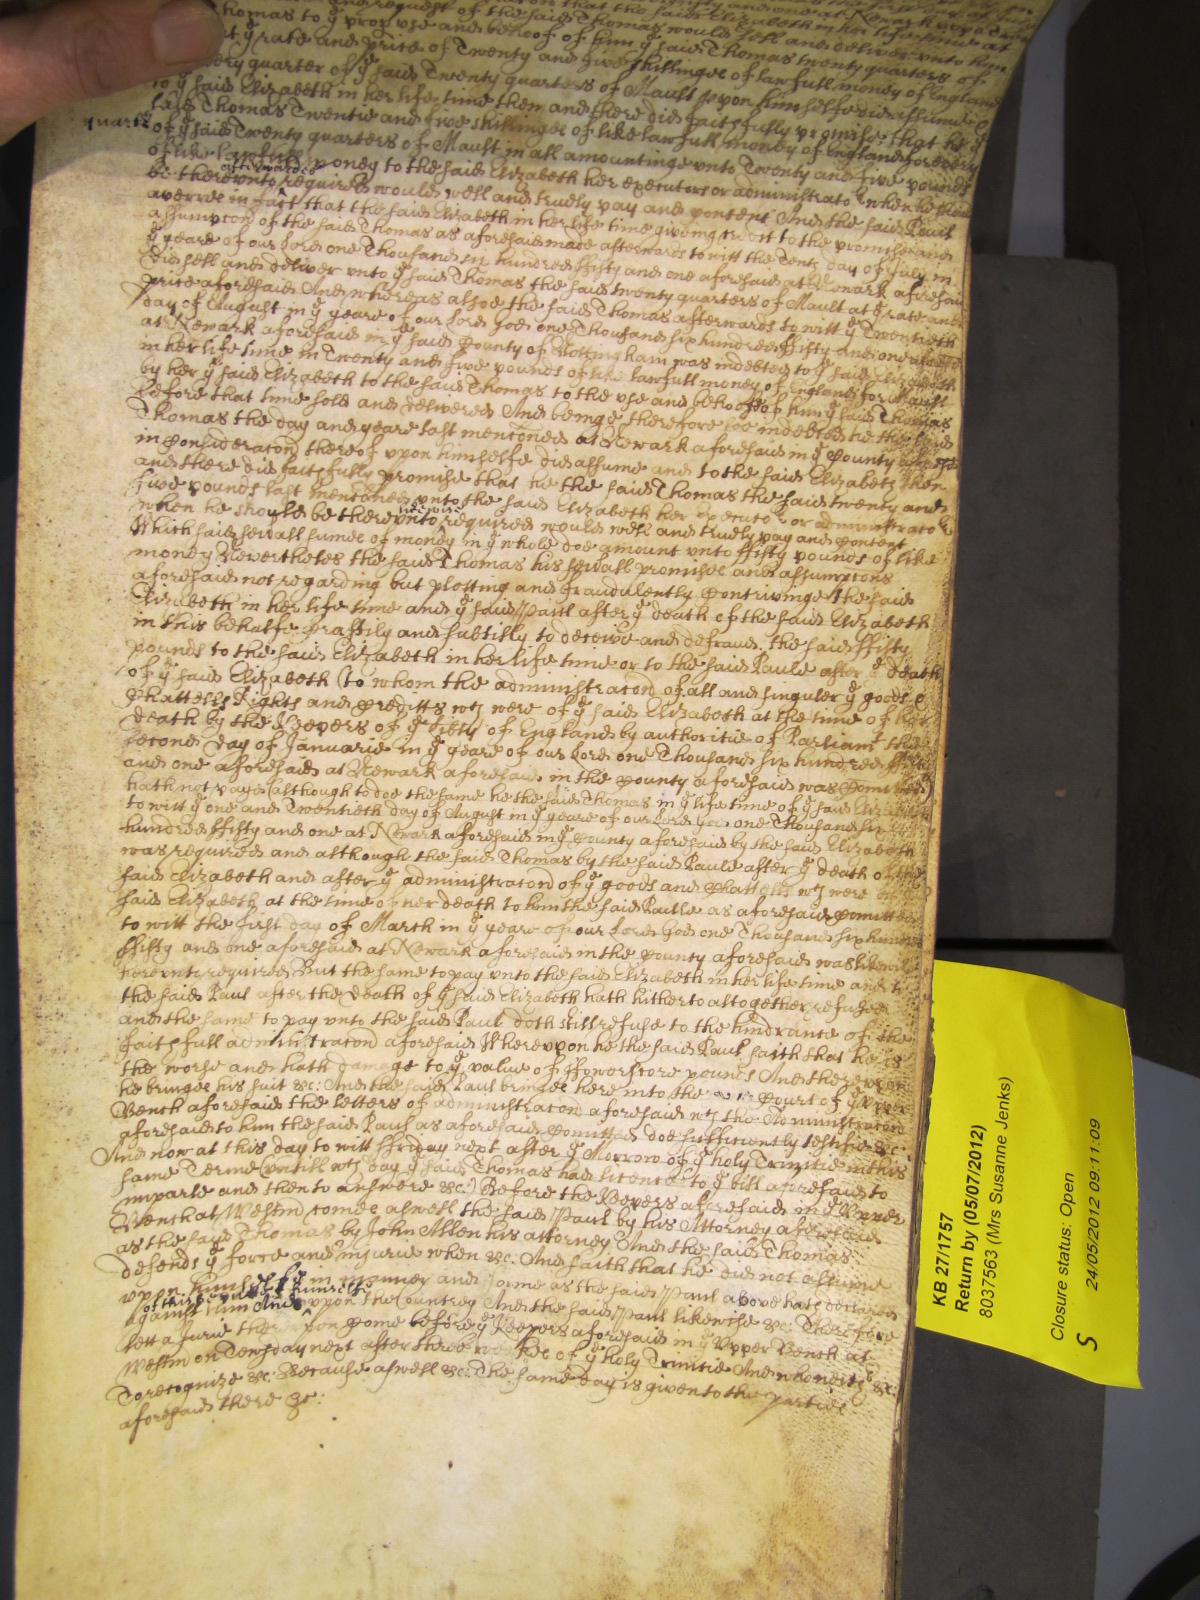 and request of the said Thomas would sell and deliver unto him
Thomas to ye prop use and behoof of him ye said Thomas twenty quarters of
at ye rate and price of Twenty and five shillinges of lawfull money of England
every quarter of ye said Twenty quarters of Mault upon himselfe did assume
to ye said Elizabeth in her life time then and there did faithfully promise that he ye
said Thomas Twentie and five shillinges of like lawfull money of England for every
quarter
of ye said Twenty quarters of Mault in all amountinge unto Twenty and five pounds
of like lawfull money to the said Elizabeth her executors or administrators when he should
afterwards
be thereunto required would well and truely pay and content And the said Paul
averrs in fact that the said Elizabeth in her life time giveing credit to the promise and
assumpcon of the said Thomas as aforesaid made afterwards to witt the Tenth day of July in
ye yeare of our Lord one Thousand six hundred ffifty and one aforesaid at Newark aforesaid
did sell and deliver unto ye said Thomas the said twenty quarters of Mault at ye rate and
price aforesaid And whereas alsoe the said Thomas afterwards to witt ye Twentieth
day of August in ye yeare of our Lord God one Thousand six hundred ffifty and one aforesaid
at Newark aforesaid in ye said County of Nottingham was indebted to ye said Elizabeth
in her life time in Twenty and five pounds of like lawfull money of England for Mault
by her ye said Elizabeth to the said Thomas to the use and behoofe of him ye said Thomas
before that time sold and delivered And beinge therefore soe indebted he the said
Thomas the day and yeare last mentioned at Newark aforesaid in ye County aforesaid
in consideracon thereof upon himselfe did assume and to the said Elizabeth then
and there did faithfully promise that he the said Thomas the said twenty and
five pounds last mentioned unto the said Elizabeth her executors or administrators
when he should be thereunto required would well and truely pay and content
Which said severall sumes of money in ye whole doe amount unto ffifty pounds of like
money Nevertheles the said Thomas his severall promises and assumpcons
aforesaid not regarding but plotting and fraudulently contriveinge the said
Elizabeth in her life time and ye said Paul after ye death of the said Elizabeth
in this behalfe craftily and subtilly to deceive and defraud the said ffifty
pounds to the said Elizabeth in her life time or to the said Paule after ye death
of ye said Elizabeth (to whom the administracon of all and singuler ye goods &
Chattells Rights and Creditts wch were of ye said Elizabeth at the time of her
death by the Keepers of ye liberty of England by authoritie of Parliamt the
second day of Januarie in ye yeare of our Lord one Thousand six hundred ffifty
and one aforesaid at Newark aforesaid in the County aforesaid was comitted)
hath not payd (although to doe the same he the said Thomas in ye life time of ye said Elizabeth
to witt ye one and Twentieth day of August in ye yeare of our Lord God one Thousand six
hundred ffifty and one at Newark aforesaid in ye County aforesaid by the said Elizabeth
was required and although the said Thomas by the said Paule after ye death of the
said Elizabeth and after ye administracon of ye goods and Chattells wch were of ye
said Elizabeth at the time of her death to him the said Paule as aforesaid comitted
to witt the first day of March in ye yeare of our Lord God one Thousand six hundred
ffifty and one aforesaid at Newark aforesaid in the County aforesaid was likewise
hereunto required But the same to pay unto the said Elizabeth in her life time and to
the said Paul after the death of ye said Elizabeth hath hitherto altogether refused
and the same to pay unto the said Paul doth still refuse to the hindrance of the
faithfull administracon aforesaid Whereupon he the said Paul saith that he is
the worse and hath damage to ye value of ffowerscore pounds And thereupon
he bringes his suit &c: And the said Paul bringes here into the Court of ye Upper
Bench aforesaid the letters of administracon aforesaid wch the Administracon
aforesaid to him the said Paul as aforesaid comitted doe sufficiently testifie &c:
And now at this day to witt ffriday next after ye Morrow of ye holy Trinitie in this
same Terme (untill wch day ye said Thomas had licence to ye bill aforesaid to
imparle and then to answere &c:) Before the Keepers aforesaid in ye Upper
Bench at Westm comes aswell the said Paul by his Attorney aforesaid
as the sayd Thomas by John Allen his attorney And the said Thomas
defends ye force and injurie when &c: And saith that he did not assume
upon himselfe in manner and forme as the said Paul above hath declared
against him And of this upon the Countrey And the said Paul likewise &c: Therefore
lett a Jurie thereupon come before ye Keepers aforesaid in ye Upper Bench at
Westm on Tewsday next after three weekes of ye holy Trinitie And who neither &c:
To recognize &c: Because aswell &c: The same day is given to the parties
aforesaid there &c:
KB 27/1757
Return by (05/07/2012)
8037563 (Mrs Susanne Jenks)
Closure status: Open
S 24/05/2012 09:11:09